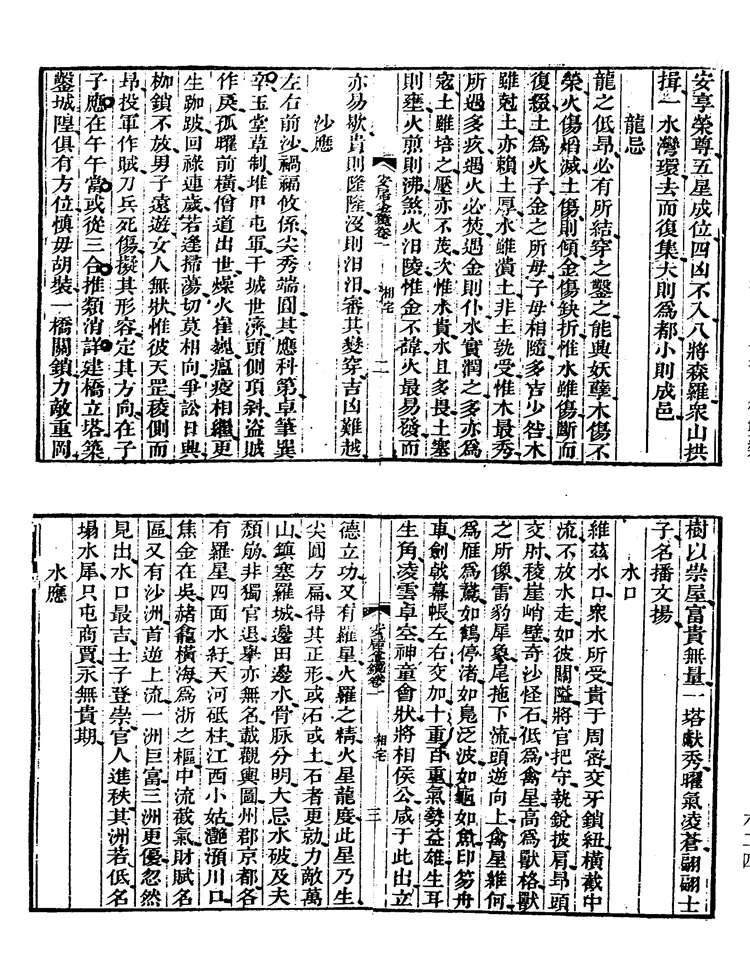 安享榮尊五星成位四凶不入八將森羅衆山拱
揖一水灣環去而復集大則爲都小則成邑
龍忌
龍之低昂必有所結穿之鑿之能興妖孽木傷不
榮火傷熖滅土傷則傾金傷鈌折惟水雖傷斷而
復綴土爲火子金之所母子母相隨多吉少咎木
雖尅土亦賴土厚水雖潰土非土孰受惟木最秀
所遇多疚遇火必焚遇金則仆水實潤之多亦爲
寇土雖培之壓亦不茂次惟水貴水且多畏土塞
則壅火煎則沸煞火汨陵惟金不諱火最易發而
安居金鏡卷一
相宅
二
亦易歇貴則隆隆沒則汨汨審其變穿吉凶難越
沙應
左右前沙禍福攸係尖秀端圓其應科第卓筆巽
辛玉堂草制堆甲屯軍干城世濟頭側項斜盜賊
作戾孤曜前橫僧道出世燥火崔巍瘟疫相繼更
生跏跛回祿連歲若逢掃蕩切莫相向爭訟日興
枷鎖不放男子遠遊女人無狀惟彼天罡稜側而
昂投軍作賊刀兵死傷擬其形容定其方向在子
子應在午午當或從三合推類消詳建橋立塔築
鑿城隍俱有方位慎毋胡裝一橋關鎖力敵重岡
樹以崇屋富貴無量一塔獻秀曜氣凌蒼翩翩士
子名播文揚
水口
維茲水口衆水所受貴于周密交牙鎖紐橫截中
流不放水走如彼關隘將官把守執銳披肩昂頭
交肘稜崖峭壁奇沙怪石低爲禽星高爲獸格獸
之所像雷豹犀象尾拖下流頭逆向上禽星維何
爲雁爲鶩如鶴停渚如鳧泛波如龜如魚印笏舟
車劍戟幕帳左右交加十重百重氣勢益雄生耳
生角凌雲卓空神童會狀將相侯公咸于此出立
安居金鏡卷一
相宅
三
德立功又有羅星火羅之精火星龍度此星乃生
尖圓方扁得其正形或石或土石者更勍力敵萬
山鎮塞羅城邊田邊水骨脉分明大忌水破及夫
頽崩非獨官退舉亦無名載觀輿圖州郡京都各
有羅星四面水紆天河砥柱江西小姑灧澦川口
焦金在吳赭龕橫海爲浙之樞中流截氣財賦名
區又有沙洲首逆上流一洲巨富三洲更優忽然
見出水口最吉士子登崇官人進秩其洲若低名
塌水犀只屯商賈永無貴期
水應